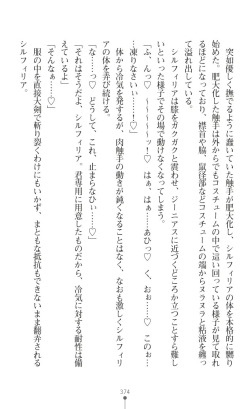 突如優しく撫でるように蠢いていた触手が肥大化し、シルフィリアの体を本格的に嬲り
始めた。肥大化した触手は外からでもコスチュームの中で這い回っている様子が見て取れ
るほどになっており、襟首や脇、鼠径部などコスチュームの端からヌラヌラと粘液を纏っ
て溢れ出している。
シルフィリアは膝をガクガクと震わせ、ジーニアスに近づくどころか立つことすら難し
いといった様子でその場で動けなくなってしまう。
「ふ、んっ♡　はぁ、はぁ……あひっ♡　く、おぉ……♡
凍りなさい……！」
体から冷気を発するが、肉触手の動きが鈍くなることはなく、なおも激しくシルフィリ
アの体を弄び続ける。
「な……っ♡　どうして、これ、止まらなひぃ……♡」
「それはそうだよ、シルフィリア。君専用に用意したものだから、冷気に対する耐性は備
えているよ」
「そんなぁ……♡」
服の中を直接大剣で斬り裂くわけにもいかず、まともな抵抗もできないまま翻弄される
シルフィリア。
374